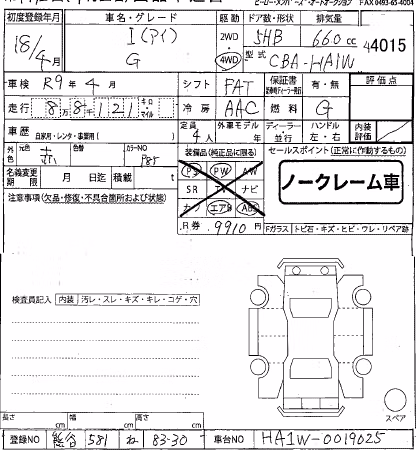 FAX 0493-65-4004
初度登録年月 車名・グレード 駆動 ドア数・形状 排気量
18/4月 I(アイ) G 2WD 4WD 5HB 660cc 44015
型式 CBA-HA1W
車検 R9年4月 シフト FAT 保証書 有・無 評価点
走行 8万8千121キロ マイル 冷房 AAC 燃料 G
車歴 自家用・レンタ・事業用( ) 定員 4人 外車モデル 年 ディーラー・並行 ハンドル 左・右 内装評価
外色 元色 赤 色替 カラーNO P85 装備品(純正品に限る) セールスポイント(正常に作動するもの)
名義変更期限 月 日迄 積載 t PS PW AW
SR TV ナビ
ナビ エアB ABS
ノークレーム車
注意事項(欠品・修復・不具合箇所および状態)
R券 9910円 Fガラス トビ石・キズ・ヒビ・ウレ・リペア跡
検査員記入 内装 汚レ・スレ・キズ・キレ・コゲ・穴
スペア
長さ cm 幅 cm 高さ cm
登録NO 熊谷 581 ね 83-30 車台NO HA1W-0019025